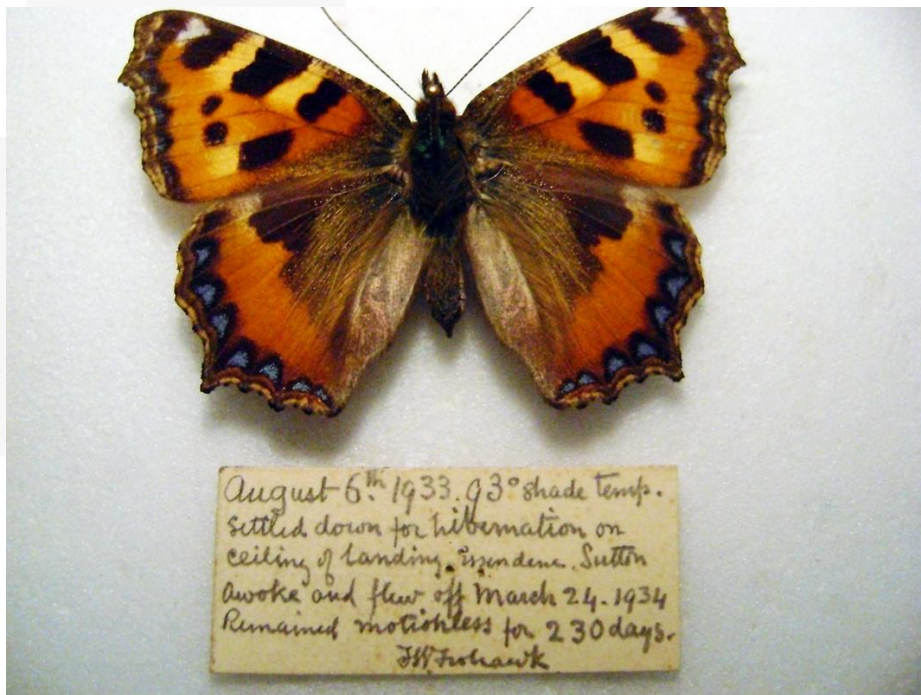 August 6th. 1933. 93° shade temp.
settled down for hibernation on
ceiling of landing. Essendene. Sutton
Awoke and flew off March 24. 1934
Remained motionless for 230 days.
FWFrohawk